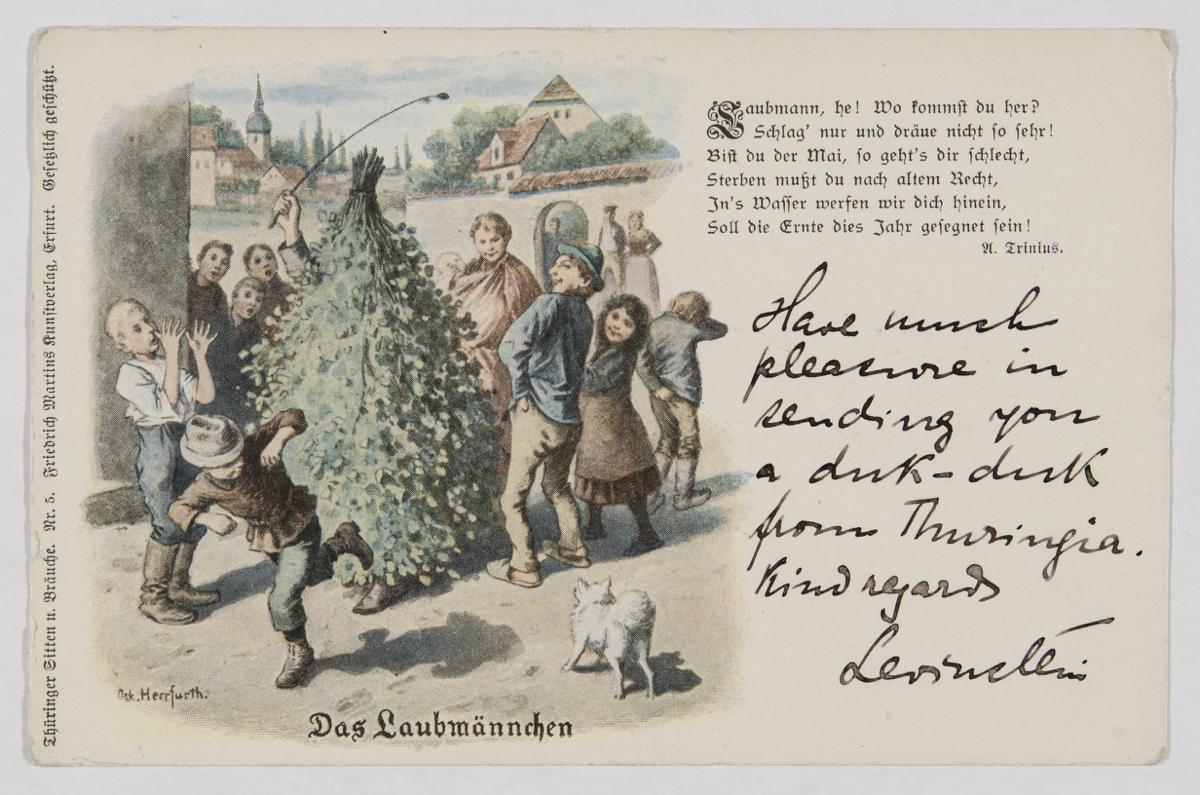 Thüringer Sitten u. Bräuche. Nr. 5. Friedrich Martins Kunstverlag, Erfurt. Gesetzlich geschützt.
Laubmann, he! Wo kommst du her?
Schlag' nur und dräue nicht so sehr!
Bist du der Mai, so geht's dir schlecht,
Sterben mußt du nach altem Recht,
In's Wasser werfen wir dich hinein,
Soll die Ernte dies Jahr gesegnet sein!
A. Trinius.
Have much
pleasure in
sending you
a duk-duk
from Thuringia.
Kind regards
Levinstein
Osk. Herrfurth.
Das Laubmännchen